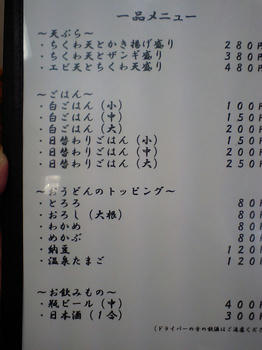 一品メニュー
～天ぷら～
・ちくわ天とかき揚げ盛り 280円
・ちくわ天とザンギ盛り 380円
・エビ天とちくわ天盛り 480円
～ごはん～
・白ごはん（小） 100
・白ごはん（中） 150
・白ごはん（大） 200
・日替わりごはん（小） 150
・日替わりごはん（中） 200
・日替わりごはん（大） 250
～おうどんのトッピング～
・とろろ 80
・おろし（大根） 80
・わかめ 80
・めかぶ 80
・納豆 120
・温泉たまご 120
～お飲みもの～
・瓶ビール（中） 400
・日本酒（1合） 300
（ドライバーの方の飲酒はご遠慮くださ